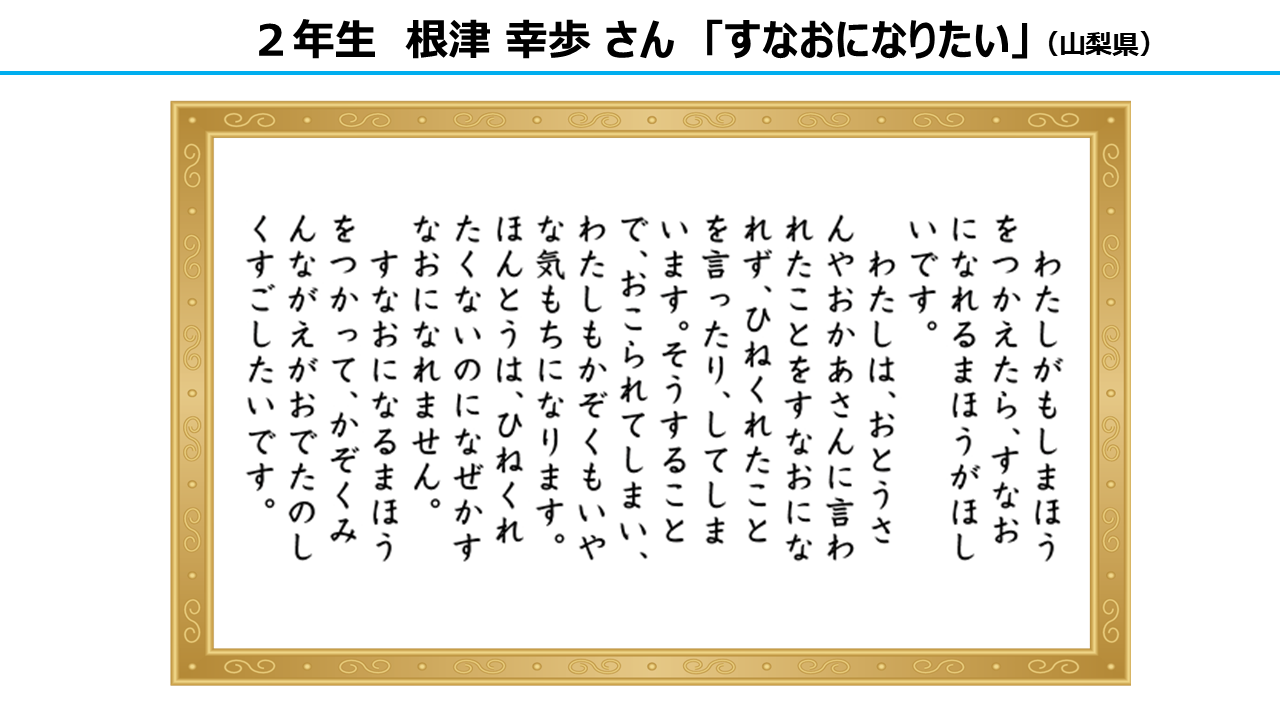 ２年生 根津 幸歩 さん 「すなおになりたい」（山梨県）
わたしがもしまほう
をつかえたら、すなお
になれるまほうがほし
いです。
わたしは、おとうさ
んやおかあさんに言わ
れたことをすなおにな
れず、ひねくれたこと
を言ったり、してしま
います。そうすること
で、おこられてしまい、
わたしもかぞくもいや
な気もちになります。
ほんとうは、ひねくれ
たくないのになぜかす
なおになれません。
すなおになるまほう
をつかって、かぞくみ
んながえがおでたのし
くすごしたいです。